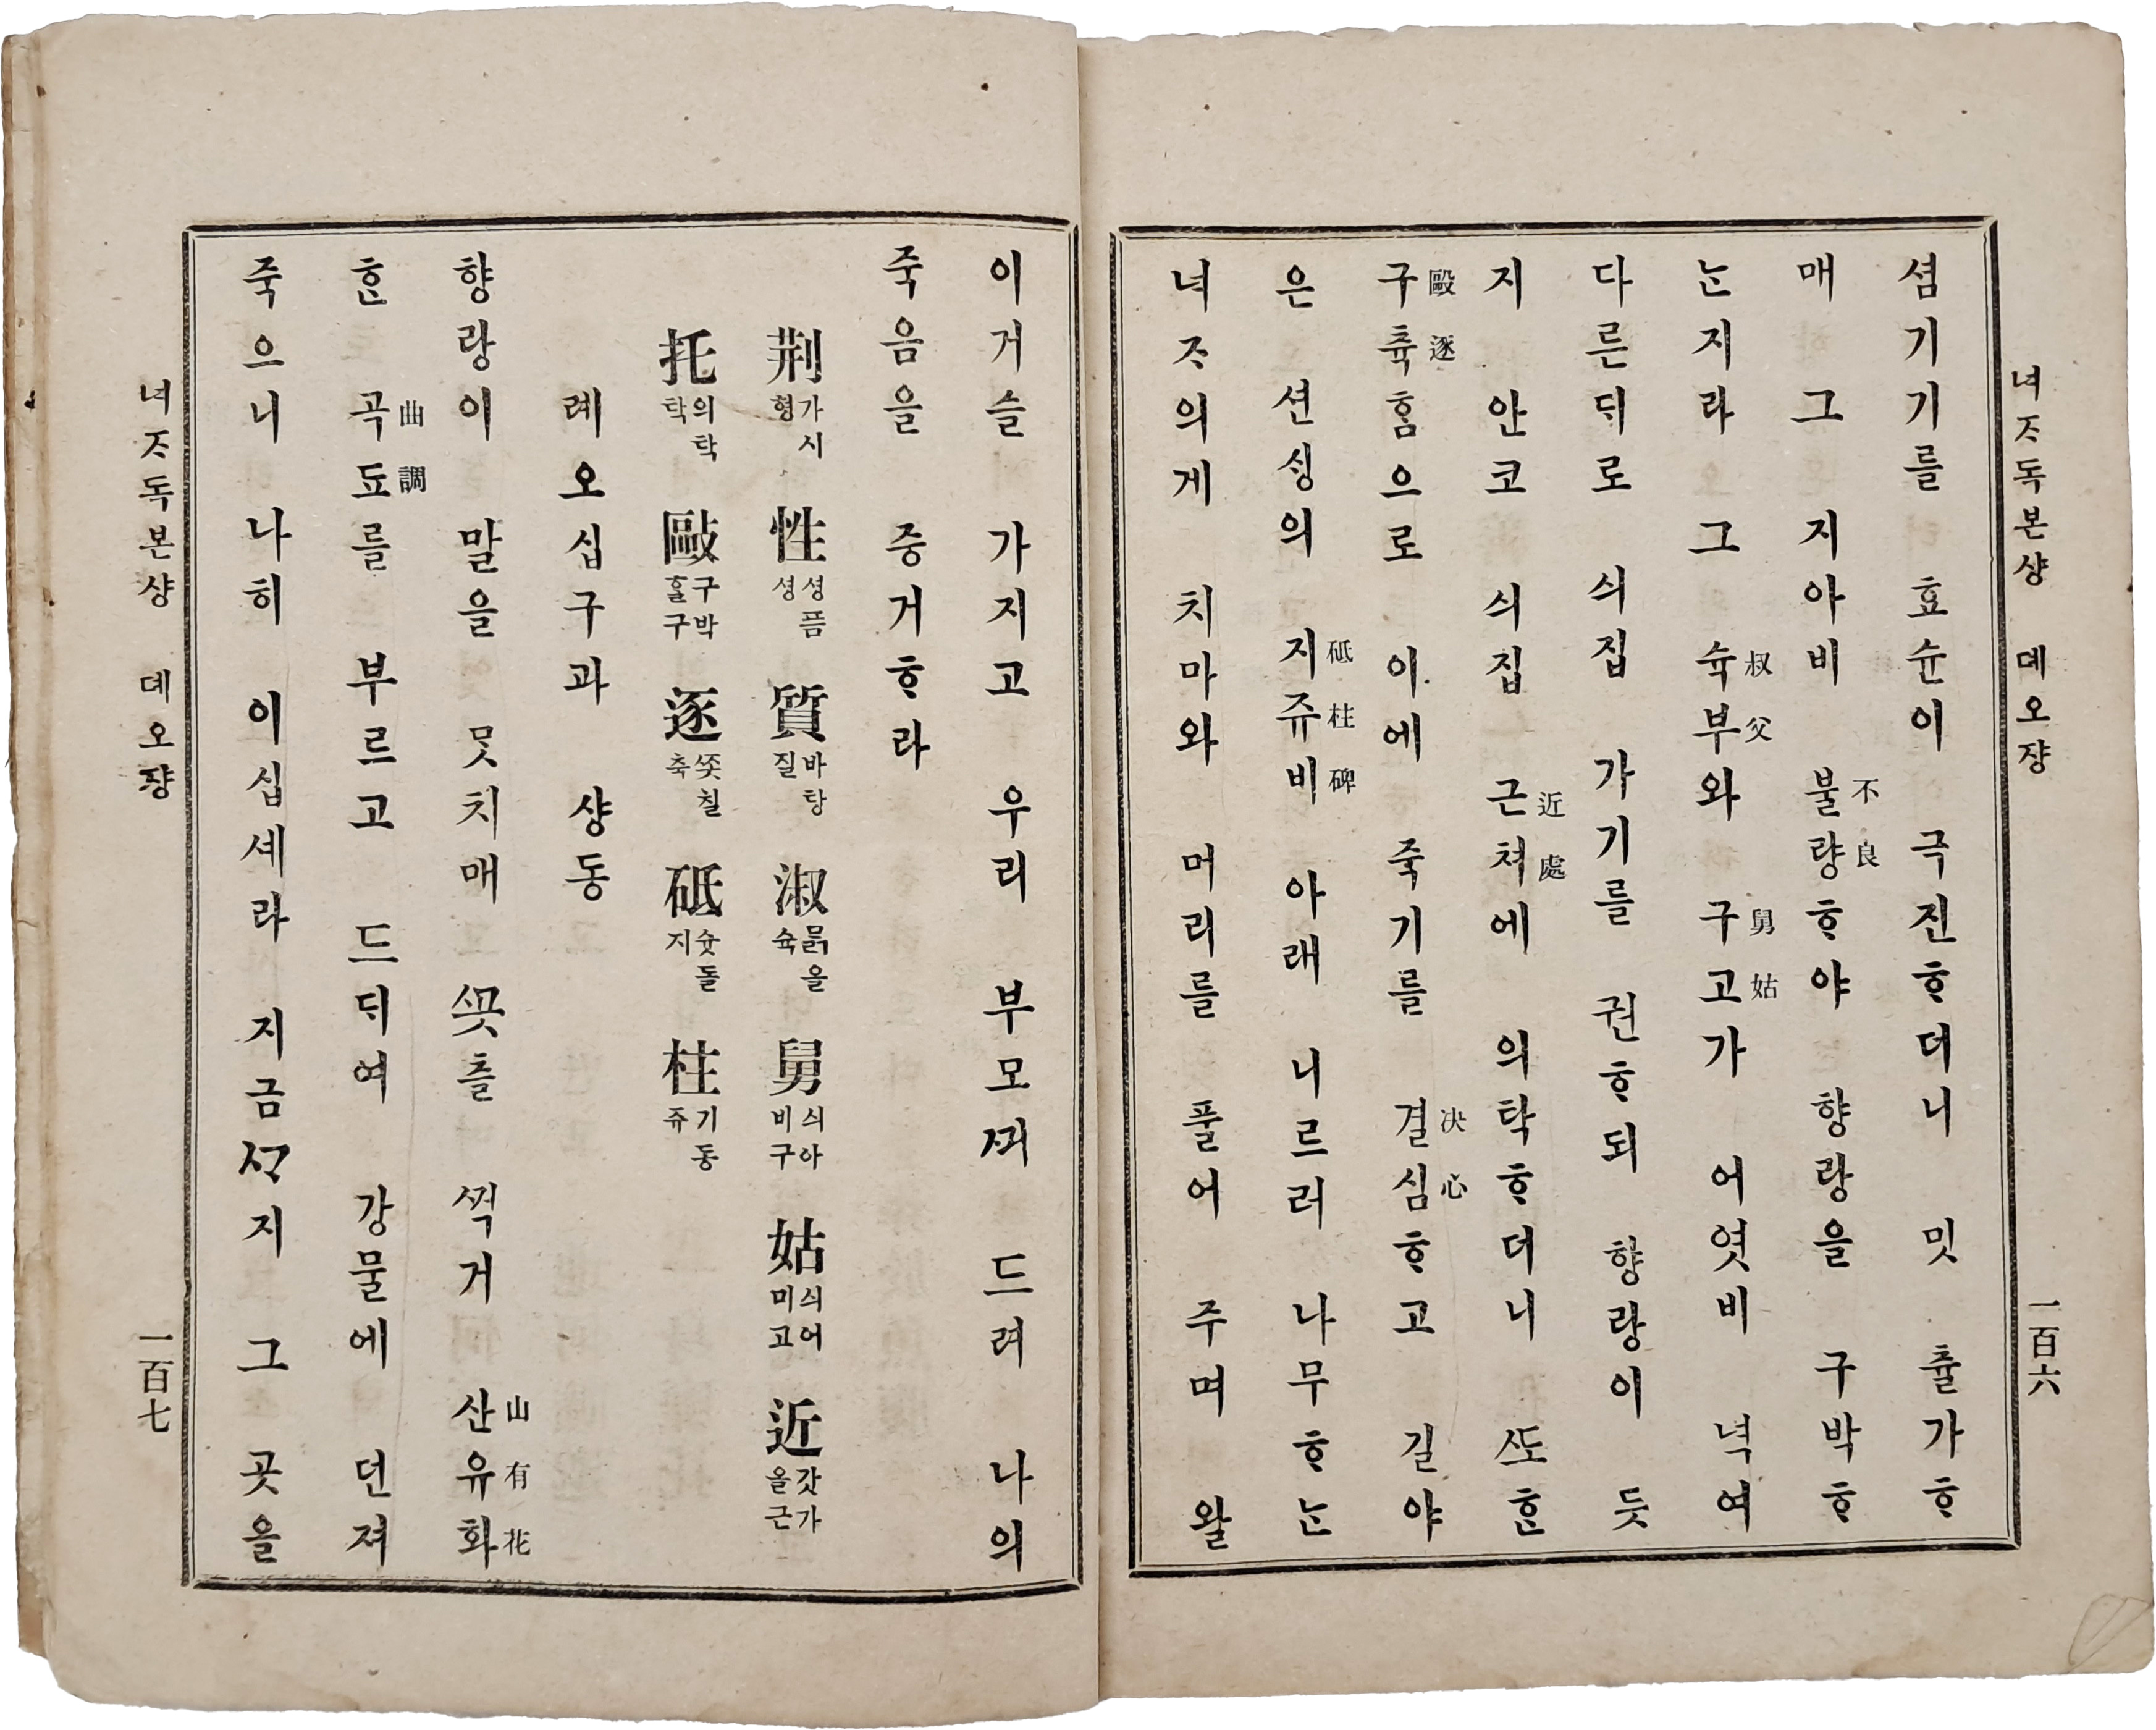 녀ᄌᆞ독본샹 뎨오쟝 一百六
셤기기를 효슌이 극진ᄒᆞ더니 밋 츌가ᄒᆞ
매 그 지아비 불량ᄒᆞ야 향랑을 구박ᄒᆞ
不良
ᄂᆞᆫ지라 그 슉부와 구고가 어엿비 녁여
叔父 舅姑
다른ᄃᆡ로 싀집 가기를 권ᄒᆞ되 향랑이 듯
지 안코 싀집 근쳐에 의탁ᄒᆞ더니 ᄯᅩᄒᆞᆫ
近處
구츅ᄒᆞᆷ으로 이에 죽기를 결심ᄒᆞ고 길야
毆逐 决心
은 션ᄉᆡᆼ의 지쥬비 아래 니르러 나무ᄒᆞᄂᆞᆫ
砥柱碑
녀ᄌᆞ의게 치마와 머리를 풀어 주며 왈
이거슬 가지고 우리 부모ᄭᅴ 드려 나의
죽음을 증거ᄒᆞ라
荆 가시형 性 셩픔셩 質 바탕질 淑 ᄆᆞᆰ을슉 舅 싀아비구 姑 싀어미고 近 갓가올근
托 의탁탁 毆 구박ᄒᆞᆯ구 逐 ᄶᅩᆺ칠축 砥 슛돌지 柱 기동쥬
례오십구과 샹동
향랑이 말을 ᄆᆞᆺ치매 ᄭᅩᆺ츨 ᄭᅥᆨ거 산유화
山有花
ᄒᆞᆫ 곡됴를 부르고 드ᄃᆡ여 강물에 던져
曲調
죽으니 나히 이십셰라 지금ᄭᆞ지 그 곳을
녀ᄌᆞ독본샹 뎨오쟝 一百七